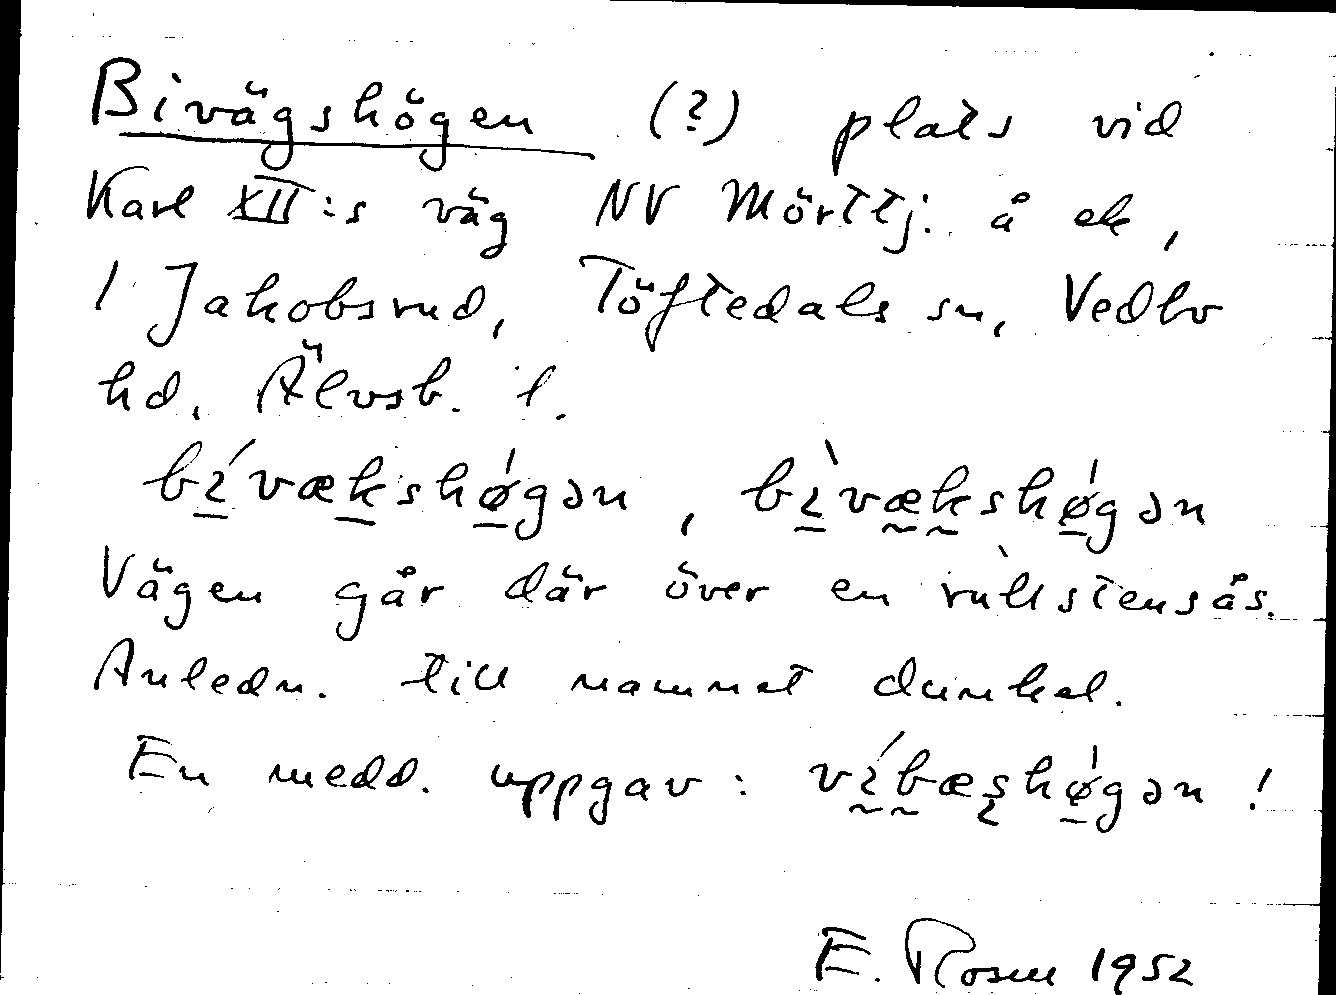 Bivägshögen (?) plats vid
Karl XII:s väg NV Mörttj. å ek,
/ Jakobsrud, Töftedals sn, Vedbo
hd, Älvsb. l.
bívækshǿgən, bìvækshǿgən
Vägen går där över en rullstensås.
Anledn. till namnet dunkel.
En medd. uppgav: víbæshǿgən!
E. Rosen 1952